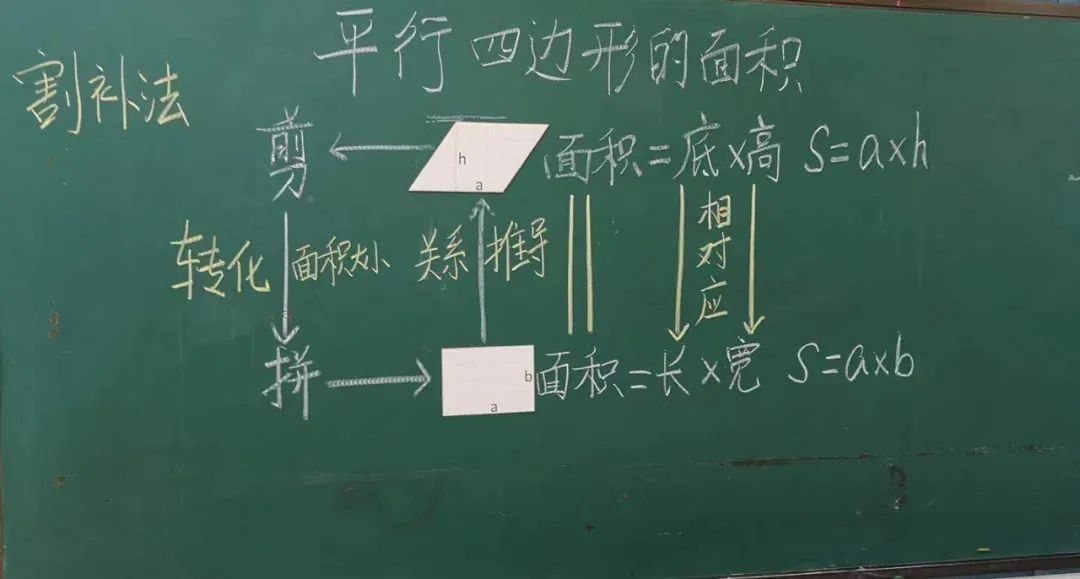 平行四边形的面积
割补法
剪 h a 面积=底×高 S=a×h
转化 面积大小 关系 推导 相对应
拼 b a 面积=长×宽 S=a×b